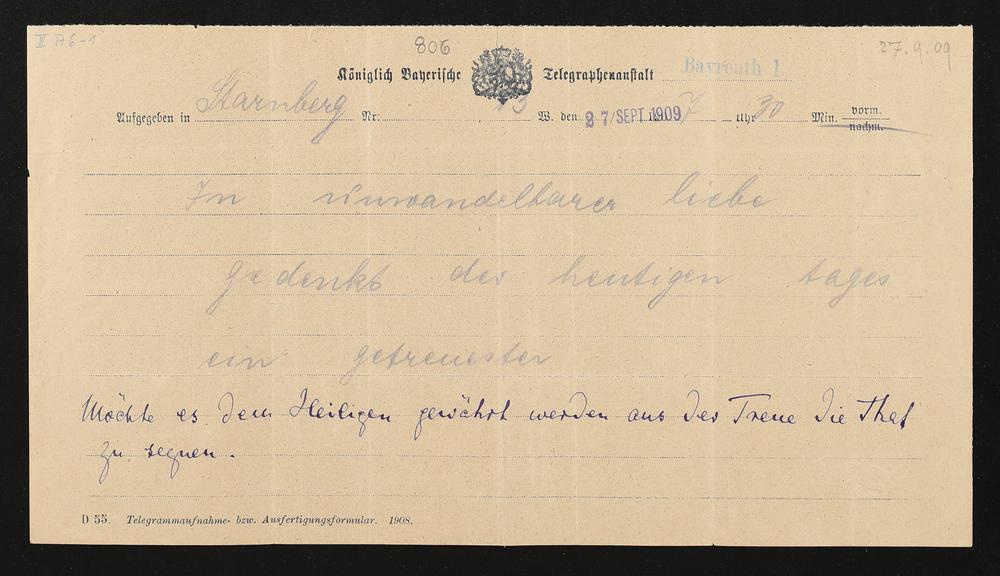 II A6-1 806 27.9.09.
Königlich Bayerische Telegraphenanstalt Bayreuth 1.
Aufgegeben in Starnberg Nr: 13 W. den 27/SEPT.1909 7 Uhr 30 Min. vorm. nachm.
In unwandelbarer liebe
gedenkt des heutigen tages
ein getreuester
Möchte es dem Heiligen gewährt werden aus der Treue die That
zu segnen.
D 55. Telegrammaufnahme- bzw. Ausfertigungsformular. 1908.